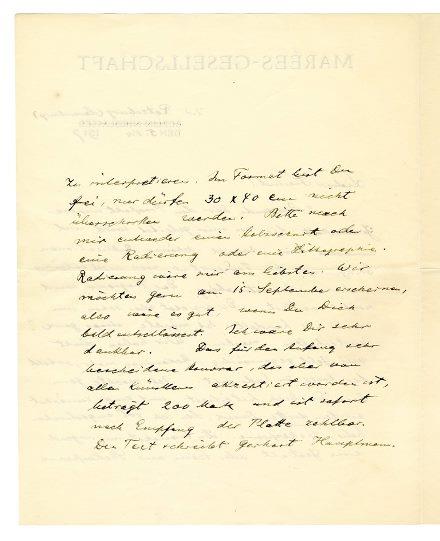 MARÉES-GESELLSCHAFT
zu interpretieren. Im Format bist Du
frei, nur dürfen 30 x 40 cm nicht
überschritten werden. Bitte mach
mir entweder einen Holzschnitt oder
eine Radierung oder eine Lithographie.
Radierung wäre mir am liebsten. Wir
möchten gern am 15. September erscheinen,
also wäre es gut wenn Du Dich
bald entschliessest. Ich wäre Dir sehr
dankbar. Das für den Anfang sehr
bescheidene Honorar, das aber von
allen Künstlern akzeptiert worden ist,
beträgt 200 Mark und ist sofort
nach Empfang der Platte zahlbar.
Den Text schreibt Gerhart Hauptmann.